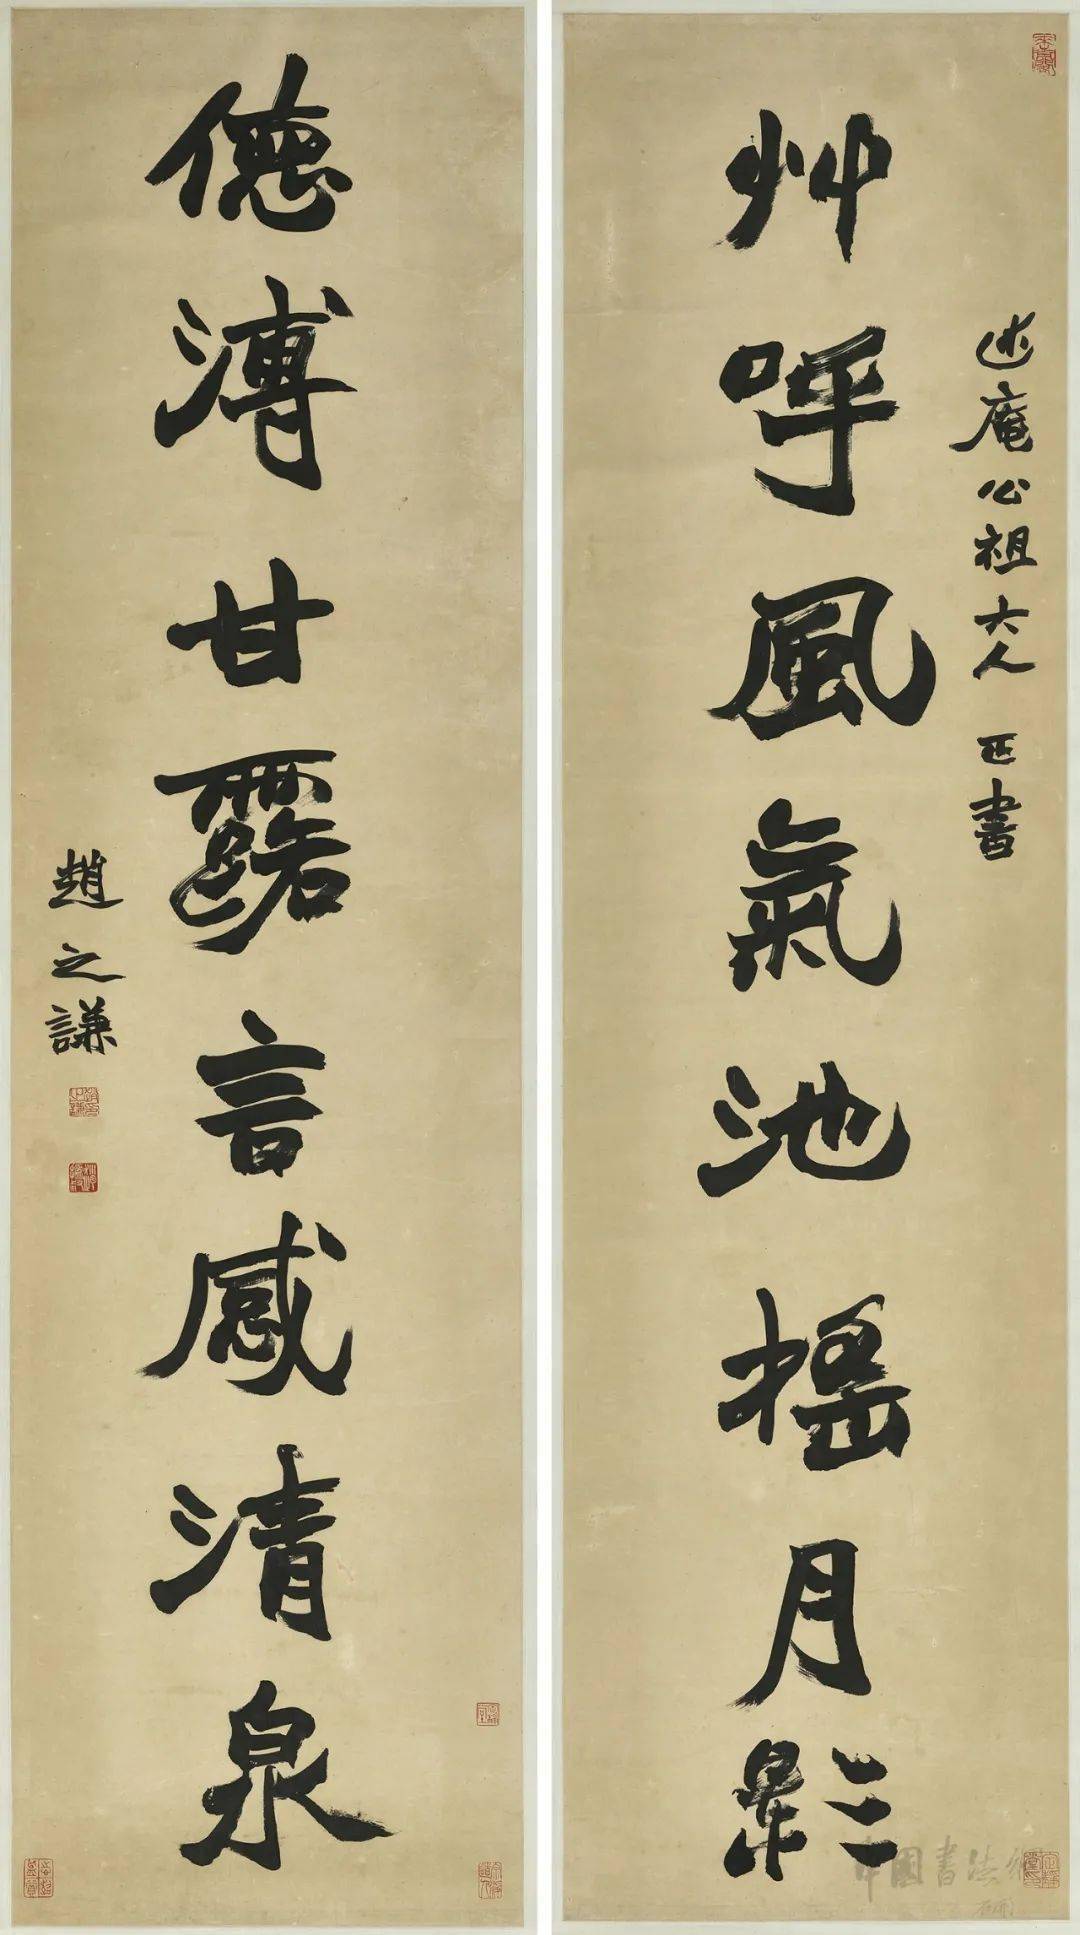 述庵公祖大人 正書
艸呼風氣池搖月影
德溥甘露言感清泉
趙之謙
中國書法